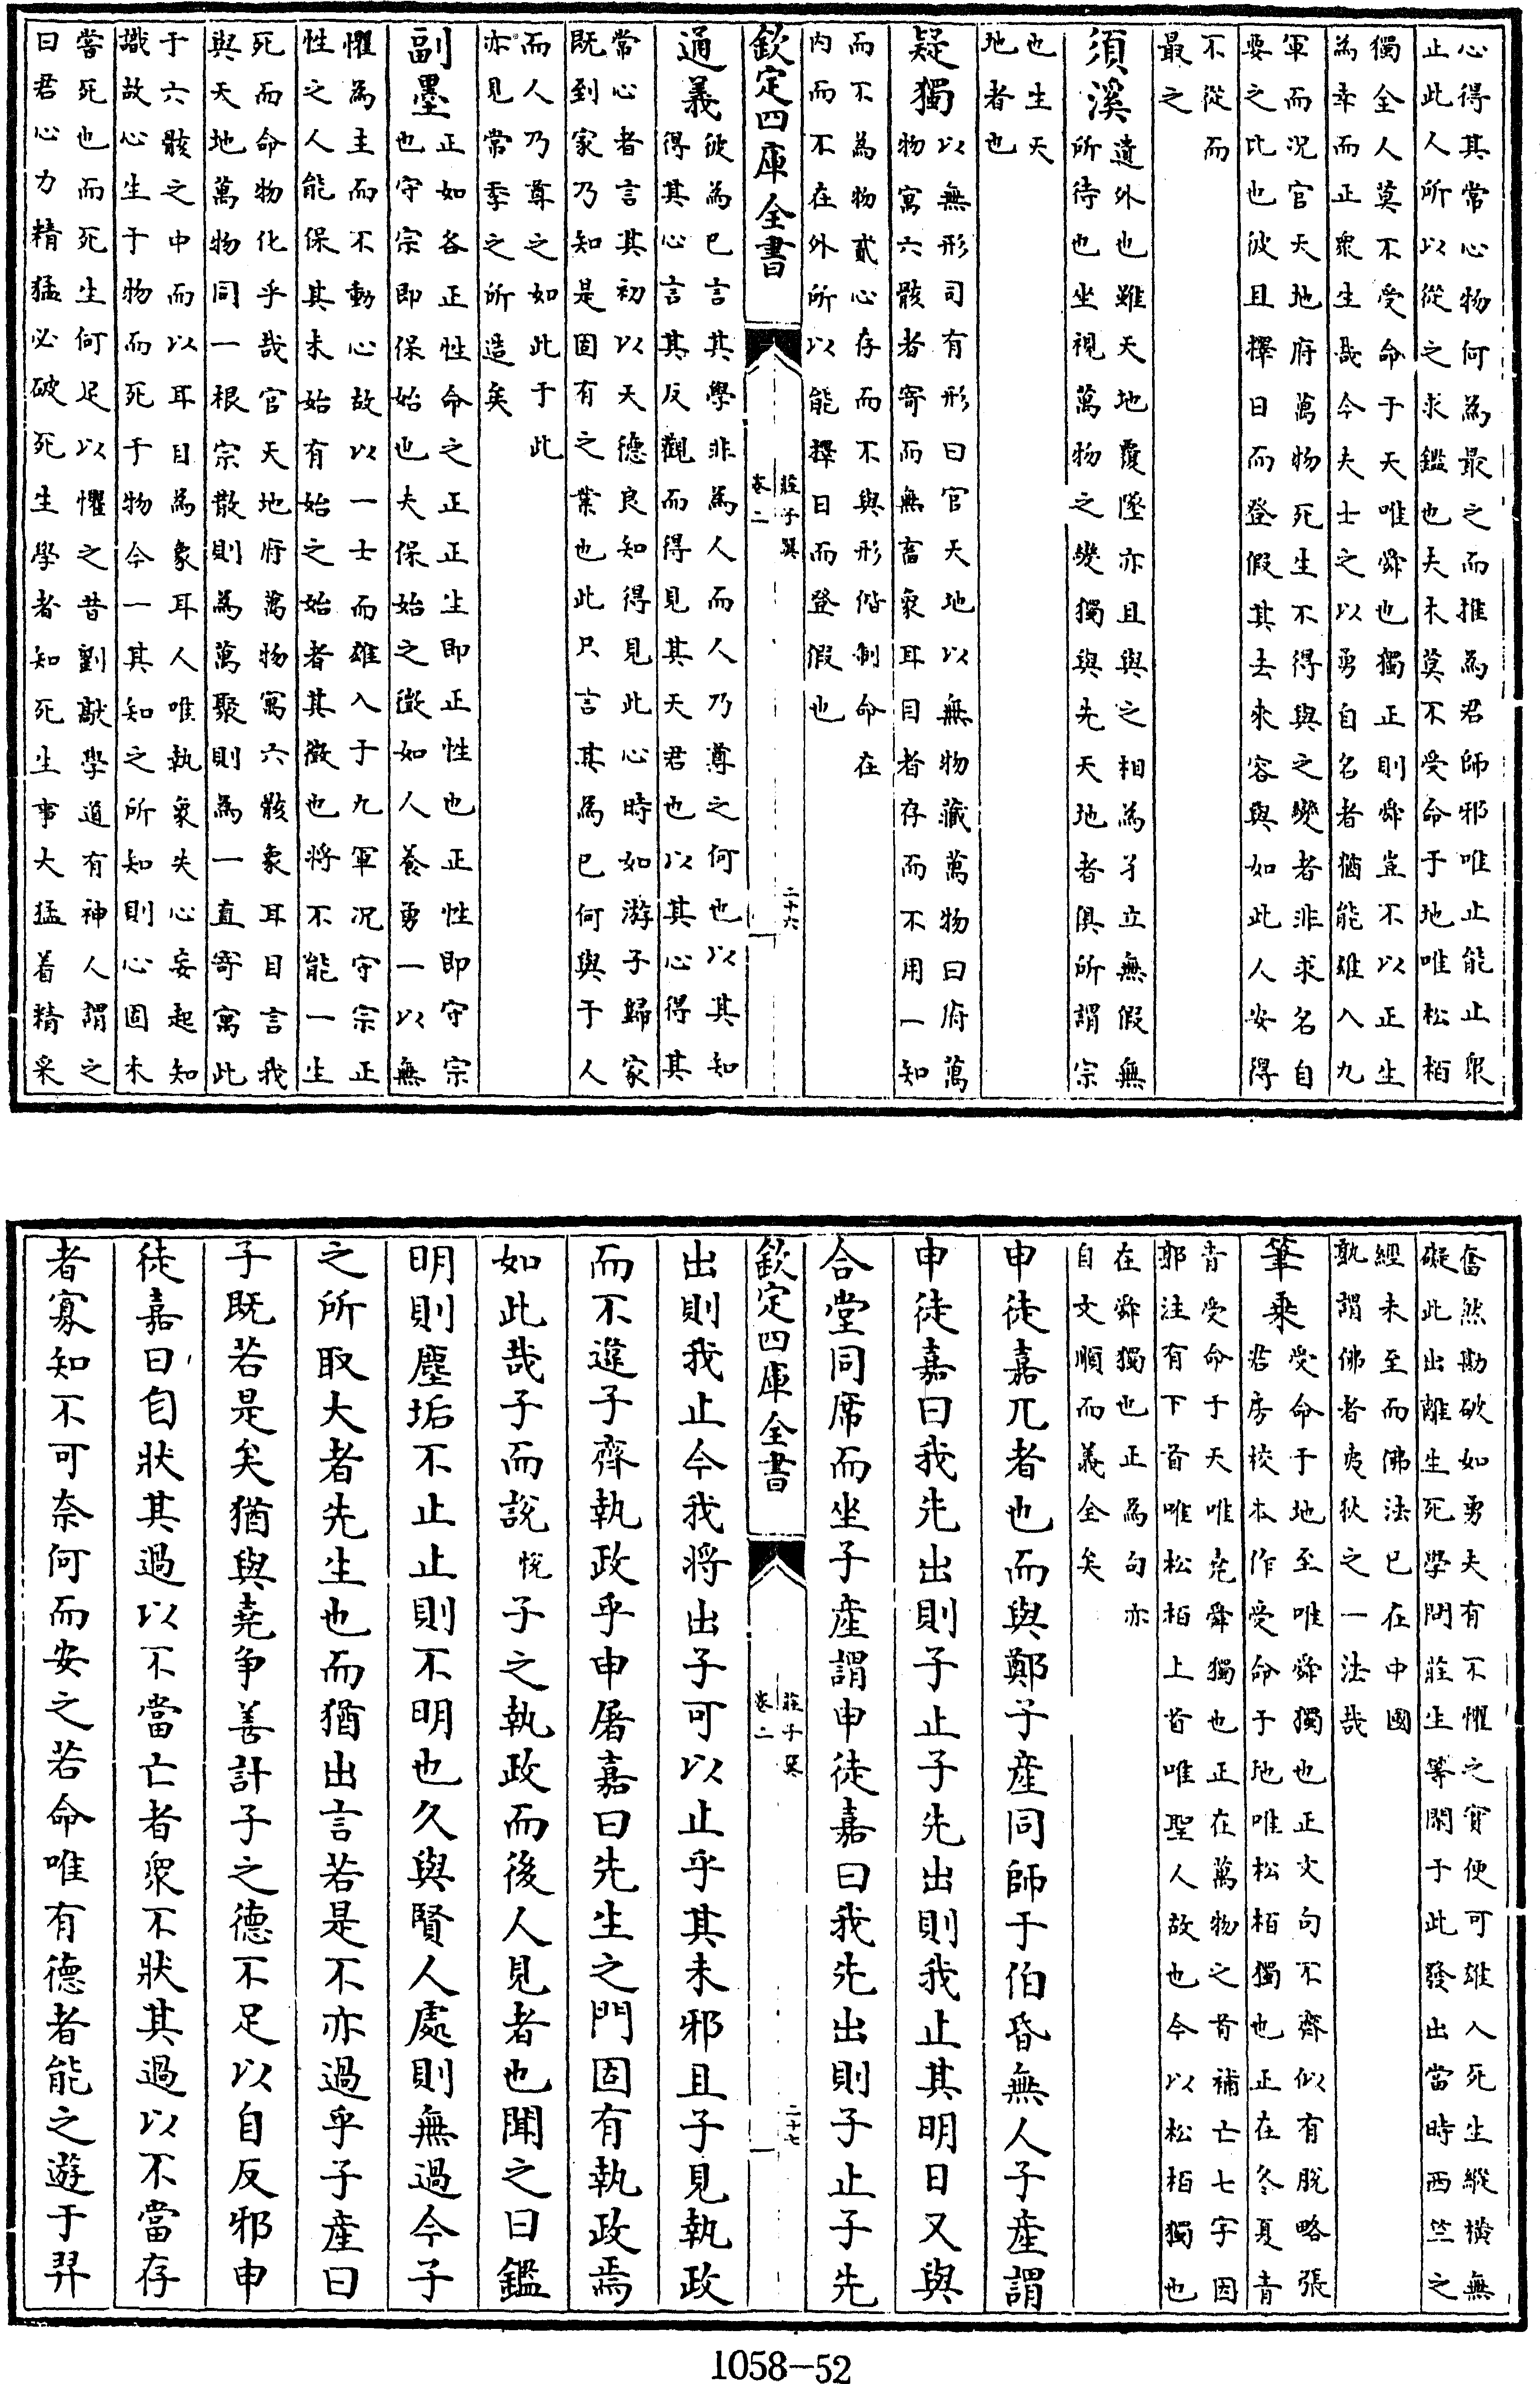 心得其常心物何為最之而推為君師邪唯止能止衆
止此人所以從之求鑑也夫未莫不受命于地唯松栢
獨全人莫不受命于天唯舜也獨正則舜豈不以正生
為幸而正衆生哉今夫士之以勇自名者猶能雄入九
軍而况官天地府萬物死生不得與之變者非求名自
要之比也彼且擇日而登假其去來容與如此人安得
不從而
最之
須溪
遺外也雖天地覆墜亦且與之相為孑立無假無
所待也坐視萬物之變獨與先天地者俱所謂宗
也生天
地者也
疑獨
以無形司有形曰官天地以無物藏萬物曰府萬
物寓六骸者寄而無畜象耳目者存而不用一知
而不為物貳心存而不與形偕制命在
内而不在外所以能擇日而登假也
欽定四庫全書
莊子翼
卷二
二十六
通義
彼為已言其學非為人而人乃尊之何也以其知
得其心言其反觀而得見其天君也以其心得其
常心者言其初以天德良知得見此心時如游子歸家
既到家乃知是固有之業也此只言其為已何與于人
而人乃尊之如此于此
亦見常季之所造矣
副墨
正如各正性命之正正生即正性也正性即守宗
也守宗即保始也夫保始之徵如人養勇一以無
懼為主而不動心故以一士而雄入于九軍况守宗正
性之人能保其未始有始之始者其徵也将不能一生
死而命物化乎哉官天地府萬物寓六骸象耳目言我
與天地萬物同一根宗散則為萬聚則為一直寄寓此
于六骸之中而以耳目為象耳人唯執象失心妄起知
識故心生于物而死于物今一其知之所知則心固未
嘗死也而死生何足以懼之昔劉歊學道有神人謂之
曰君心力精猛必破死生學者知死生事大猛着精采
奮然勘破如勇夫有不懼之實便可雄入死生縱横無
礙此出離生死學問莊生等閑于此發出當時西竺之
經未至而佛法已在中國
孰謂佛者夷狄之一法哉
筆乘
受命于地至唯舜獨也正文句不齊似有脫略張
君房校本作受命于地唯松栢獨也正在冬夏青
青受命于天唯堯舜獨也正在萬物之首補亡七字因
郭注有下首唯松栢上首唯聖人故也今以松栢獨也
在舜獨也正為句亦
自文順而義全矣
申徒嘉兀者也而與鄭子産同師于伯昏無人子産謂
申徒嘉曰我先出則子止子先出則我止其明日又與
合堂同席而坐子産謂申徒嘉曰我先出則子止子先
欽定四庫全書
莊子翼
卷二
二十七
出則我止今我将出子可以止乎其未邪且子見執政
而不違子齊執政乎申屠嘉曰先生之門固有執政焉
如此哉子而說悅子之執政而後人見者也聞之曰鑑
明則塵垢不止止則不明也久與賢人處則無過今子
之所取大者先生也而猶出言若是不亦過乎子産曰
子既若是矣猶與堯争善計子之德不足以自反邪申
徒嘉曰自狀其過以不當亡者衆不狀其過以不當存
者寡知不可奈何而安之若命唯有德者能之遊于羿
1058-52